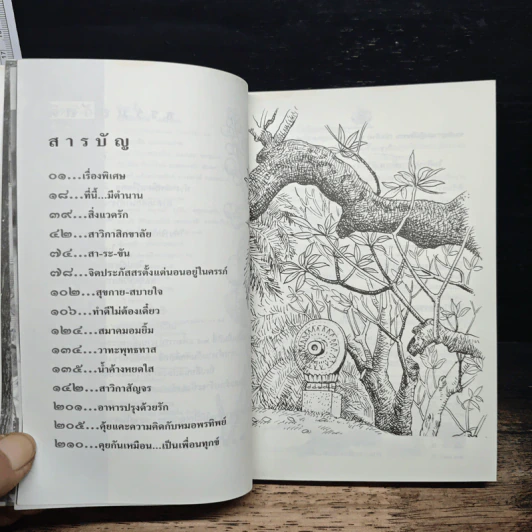 สารบัญ
๐๑...เรื่องพิเศษ
๑๘...ที่นี้...มีตำนาน
๓๙...สิ่งแวดรัก
๔๒...สาวิกาสิกขาลัย
๗๔...สา-ระ-ขัน
๗๘...จิตประภัสสรตั้งแต่นอนอยู่ในครรภ์
๑๐๒...สุขกาย-สบายใจ
๑๐๖...ทำดีไม่ต้องเดี๋ยว
๑๒๔...สมาคมอมยิ้ม
๑๓๔...วาทะพุทธทาส
๑๓๕...น้ำค้างหยดใส
๑๔๒...สาวิกาสัญจร
๒๐๑...อาหารปรุงด้วยรัก
๒๐๕...ตุ้ยและความคิดกับหมอพรทิพย์
๒๑๐...คุยกันเหมือน...เป็นเพื่อนทุกข์